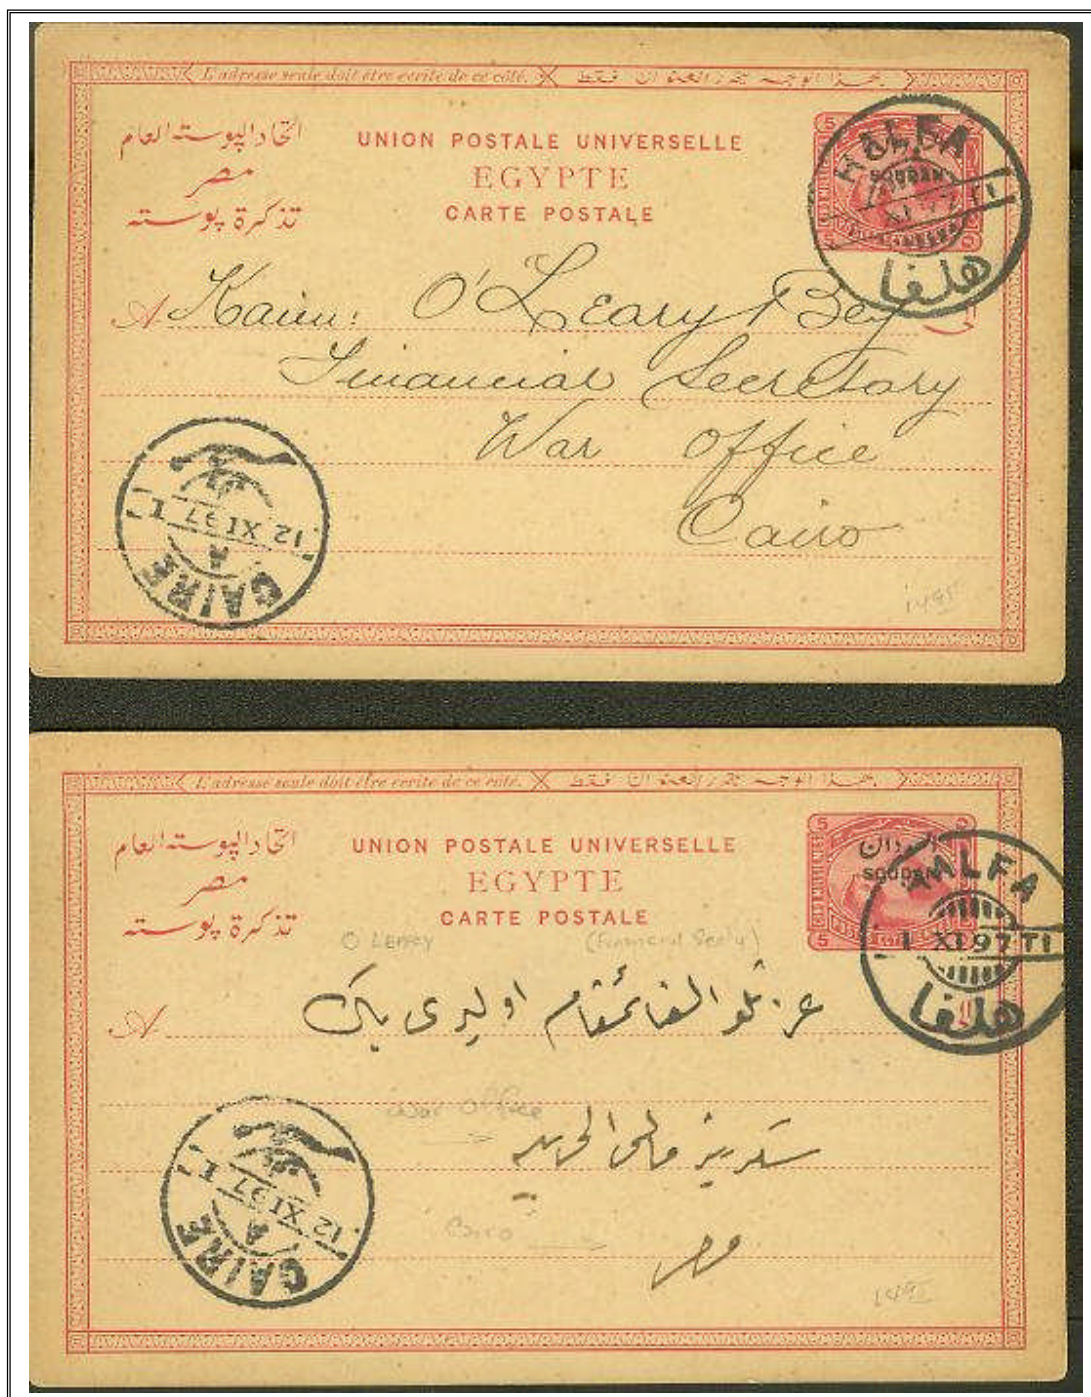 L'adresse seule doit être écrite de ce côté.
اتحاد البوسته العام
مصر
تذكرة بوسته
UNION POSTALE UNIVERSELLE
EGYPTE
CARTE POSTALE
5
SOUDAN
HALFA
XI 97 T1
هلفا
A Kaim: O'Leary Bey
Financial Secretary
War Office
Cairo
12 XI 97 T
A
CAIRE
L'adresse seule doit être écrite de ce côté.
اتحاد البوسته العام
مصر
تذكرة بوسته
UNION POSTALE UNIVERSELLE
EGYPTE
CARTE POSTALE
5 5
السودان
SOUDAN
HALFA
1 XI 97 T1
هلفا
O Leary (Financial Secty)
A عزتلو القائمقام اوليرى بك
War Office
سكرتير مالى الحربيه
Cairo
مصر
12 XI 97 T
A
CAIRE